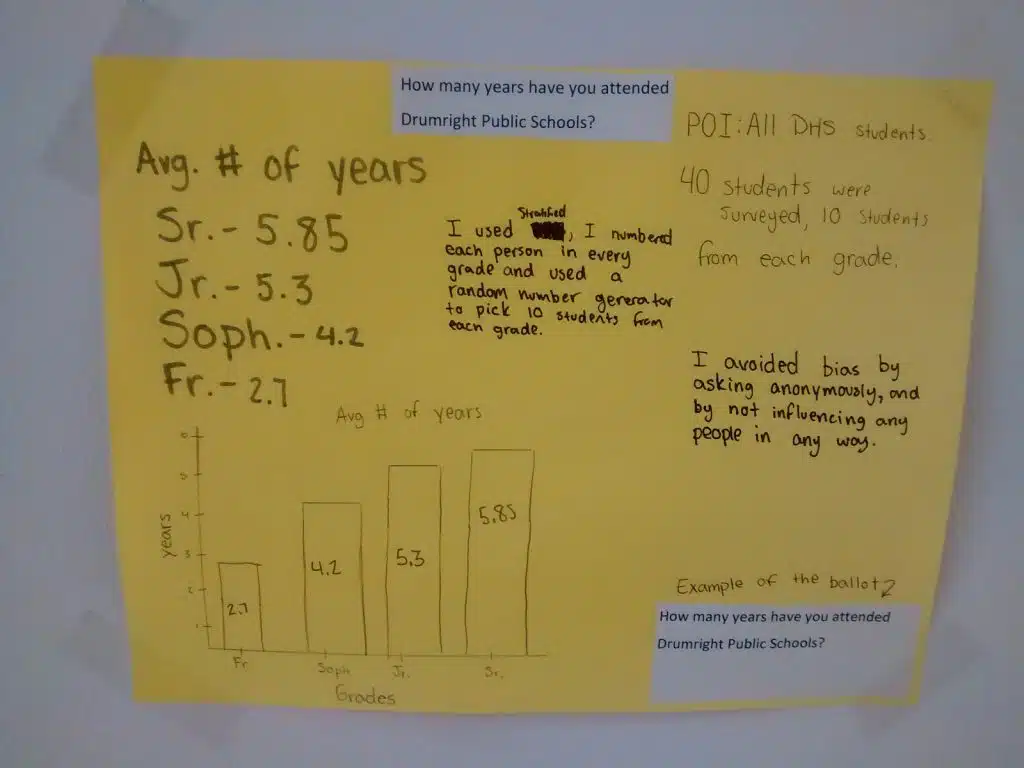 How many years have you attended
Drumright Public Schools?
Avg. # of years
Sr. - 5.85
Jr. - 5.3
Soph. - 4.2
Fr. - 2.7
Stratified
I used , I numbered
each person in every
grade and used a
random number generator
to pick 10 students from
each grade.
POI: All DHS students.
40 students were
surveyed, 10 students
from each grade.
I avoided bias by
asking anonymously, and
by not influencing any
people in any way.
Avg # of years
years
6
5
4
3
2
1
2.7
4.2
5.3
5.85
Fr
Soph
Jr.
Sr.
Grades
Example of the ballot
How many years have you attended
Drumright Public Schools?